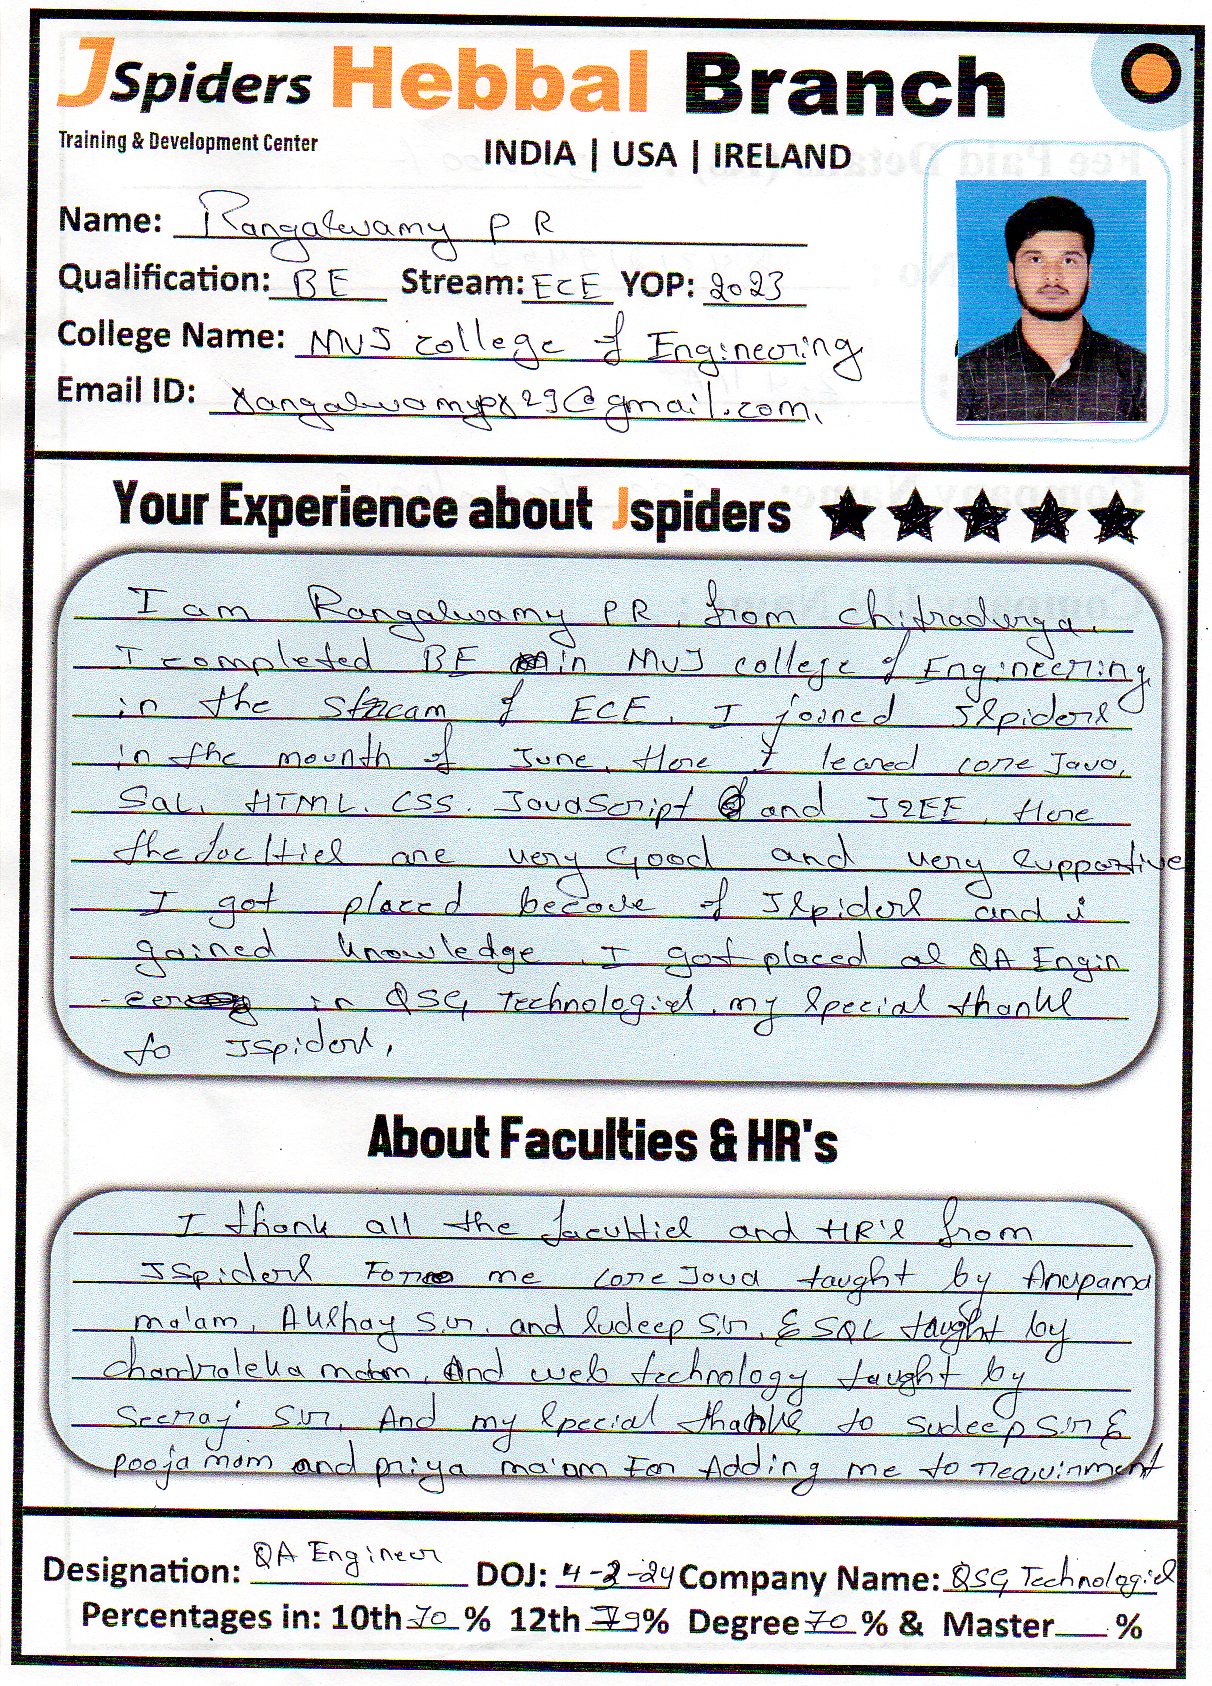 JSpiders Hebbal Branch
Training & Development Center
INDIA | USA | IRELAND
Name: Rangaswamy P R
Qualification: BE Stream: ECE YOP: 2023
College Name: MVJ college of Engineering
Email ID: rangaswamypr29@gmail.com.
Your Experience about Jspiders
I am Rangaswamy PR, from chitradurga.
I completed BE in MVJ college of Engineering
in the Stream of ECE. I joined Jspiders
in the mounth of June. Here I leared core Java,
SQL, HTML. CSS. JavaScript and J2EE. Here
the faculties are very Good and very supportive
I got placed because of Jspiders and i
gained knowledge. I got placed as QA Engin
-eer in QSG Technologies. my special thanks
to JSpiders,
About Faculties & HR's
I thank all the faculties and HR's from
JSpiders For me core Java taught by Anupama
ma'am, Akshay Sir. and sudeep Sir, & SQL taught by
chandraleka mam, And web technology taught by
Seeraj Sir, And my special thanks to sudeep Sir &
pooja mam and priya ma'am For Adding me to requirment
Designation: QA Engineer DOJ: 4-2-24 Company Name: QSG Technologies
Percentages in: 10th 70 % 12th 79% Degree 70 % & Master %